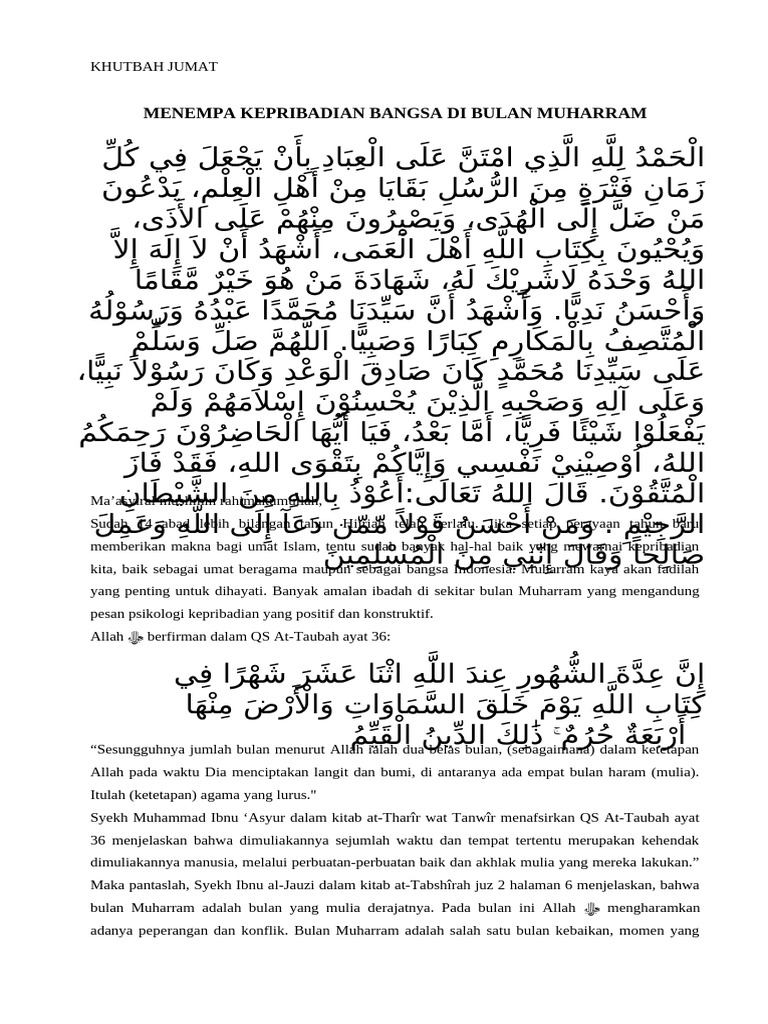 KHUTBAH JUMAT
MENEMPA KEPRIBADIAN BANGSA DI BULAN MUHARRAM
الْحَمْدُ لِلَّهِ الَّذِي امْتَنَّ عَلَى الْعِبَادِ بِأَنْ يَجْعَلَ فِي كُلِّ
زَمَانِ فَتْرَةٍ مِنَ الرُّسُلِ بَقَايَا مِنْ أَهْلِ الْعِلْمِ، يَدْعُونَ
مَنْ ضَلَّ إِلَى الْهُدَى، وَيَصْبِرُونَ مِنْهُمْ عَلَى الأَذَى،
وَيُحْيُونَ بِكِتَابِ اللَّهِ أَهْلَ الْعَمَى، أَشْهَدُ أَنْ لاَ إِلَهَ إِلاَّ
اللهُ وَحْدَهُ لَاشَرِيْكَ لَهُ، شَهَادَةَ مَنْ هُوَ خَيْرٌ مَّقَامًا
وَأَحْسَنُ نَدِيًّا. وَأَشْهَدُ أَنَّ سَيِّدَنَا مُحَمَّدًا عَبْدُهُ وَرَسُوْلُهُ
الْمُتَّصِفُ بِالْمَكَارِمِ كِبَارًا وَصَبِيًّا. اَللَّهُمَّ صَلِّ وَسَلِّمْ
عَلَى سَيِّدِنَا مُحَمَّدٍ كَانَ صَادِقَ الْوَعْدِ وَكَانَ رَسُوْلاً نَبِيًّا،
وَعَلَى آلِهِ وَصَحْبِهِ الَّذِيْنَ يُحْسِنُوْنَ إِسْلاَمَهُمْ وَلَمْ
يَفْعَلُوْا شَيْئًا فَرِيًّا، أَمَّا بَعْدُ، فَيَا أَيُّهَا الْحَاضِرُوْنَ رَحِمَكُمُ
اللهُ، اُوْصِيْنِيْ نَفْسِىي وَإِيَّاكُمْ بِتَقْوَى اللهِ، فَقَدْ فَازَ
الْمُتَّقُوْنَ. قَالَ اللهُ تَعَالَى:أَعُوْذُ بِاللهِ مِنَ الشَّيْطَانِ
الرَّجِيْمِ . وَمَنْ أَحْسَنُ قَوْلاً مِّمَّن دَعَآ إِلَى اللَّهِ وَعَمِلَ
صَالِحاً وَقَالَ إِنَّنِي مِنَ الْمُسْلِمِينَ
Ma'asyiral muslimin rahimakumullah,
Sudah 14 abad lebih bilangan tahun Hijriah telah berlalu. Jika setiap perayaan tahun baru
memberikan makna bagi umat Islam, tentu sudah banyak hal-hal baik yang mewarnai kepribadian
kita, baik sebagai umat beragama maupun sebagai bangsa Indonesia. Muharram kaya akan fadilah
yang penting untuk dihayati. Banyak amalan ibadah di sekitar bulan Muharram yang mengandung
pesan psikologi kepribadian yang positif dan konstruktif.
Allah ﷻ berfirman dalam QS At-Taubah ayat 36:
إِنَّ عِدَّةَ الشُّهُورِ عِندَ اللَّهِ اثْنَا عَشَرَ شَهْرًا فِي
كِتَابِ اللَّهِ يَوْمَ خَلَقَ السَّمَاوَاتِ وَالْأَرْضَ مِنْهَا
أَرْبَعَةٌ حُرُمٌ ۚ ذَٰلِكَ الدِّينُ الْقَيِّمُ
“Sesungguhnya jumlah bulan menurut Allah ialah dua belas bulan, (sebagaimana) dalam ketetapan
Allah pada waktu Dia menciptakan langit dan bumi, di antaranya ada empat bulan haram (mulia).
Itulah (ketetapan) agama yang lurus."
Syekh Muhammad Ibnu ‘Asyur dalam kitab at-Tharîr wat Tanwîr menafsirkan QS At-Taubah ayat
36 menjelaskan bahwa dimuliakannya sejumlah waktu dan tempat tertentu merupakan kehendak
dimuliakannya manusia, melalui perbuatan-perbuatan baik dan akhlak mulia yang mereka lakukan.”
Maka pantaslah, Syekh Ibnu al-Jauzi dalam kitab at-Tabshîrah juz 2 halaman 6 menjelaskan, bahwa
bulan Muharram adalah bulan yang mulia derajatnya. Pada bulan ini Allah ﷻ mengharamkan
adanya peperangan dan konflik. Bulan Muharram adalah salah satu bulan kebaikan, momen yang